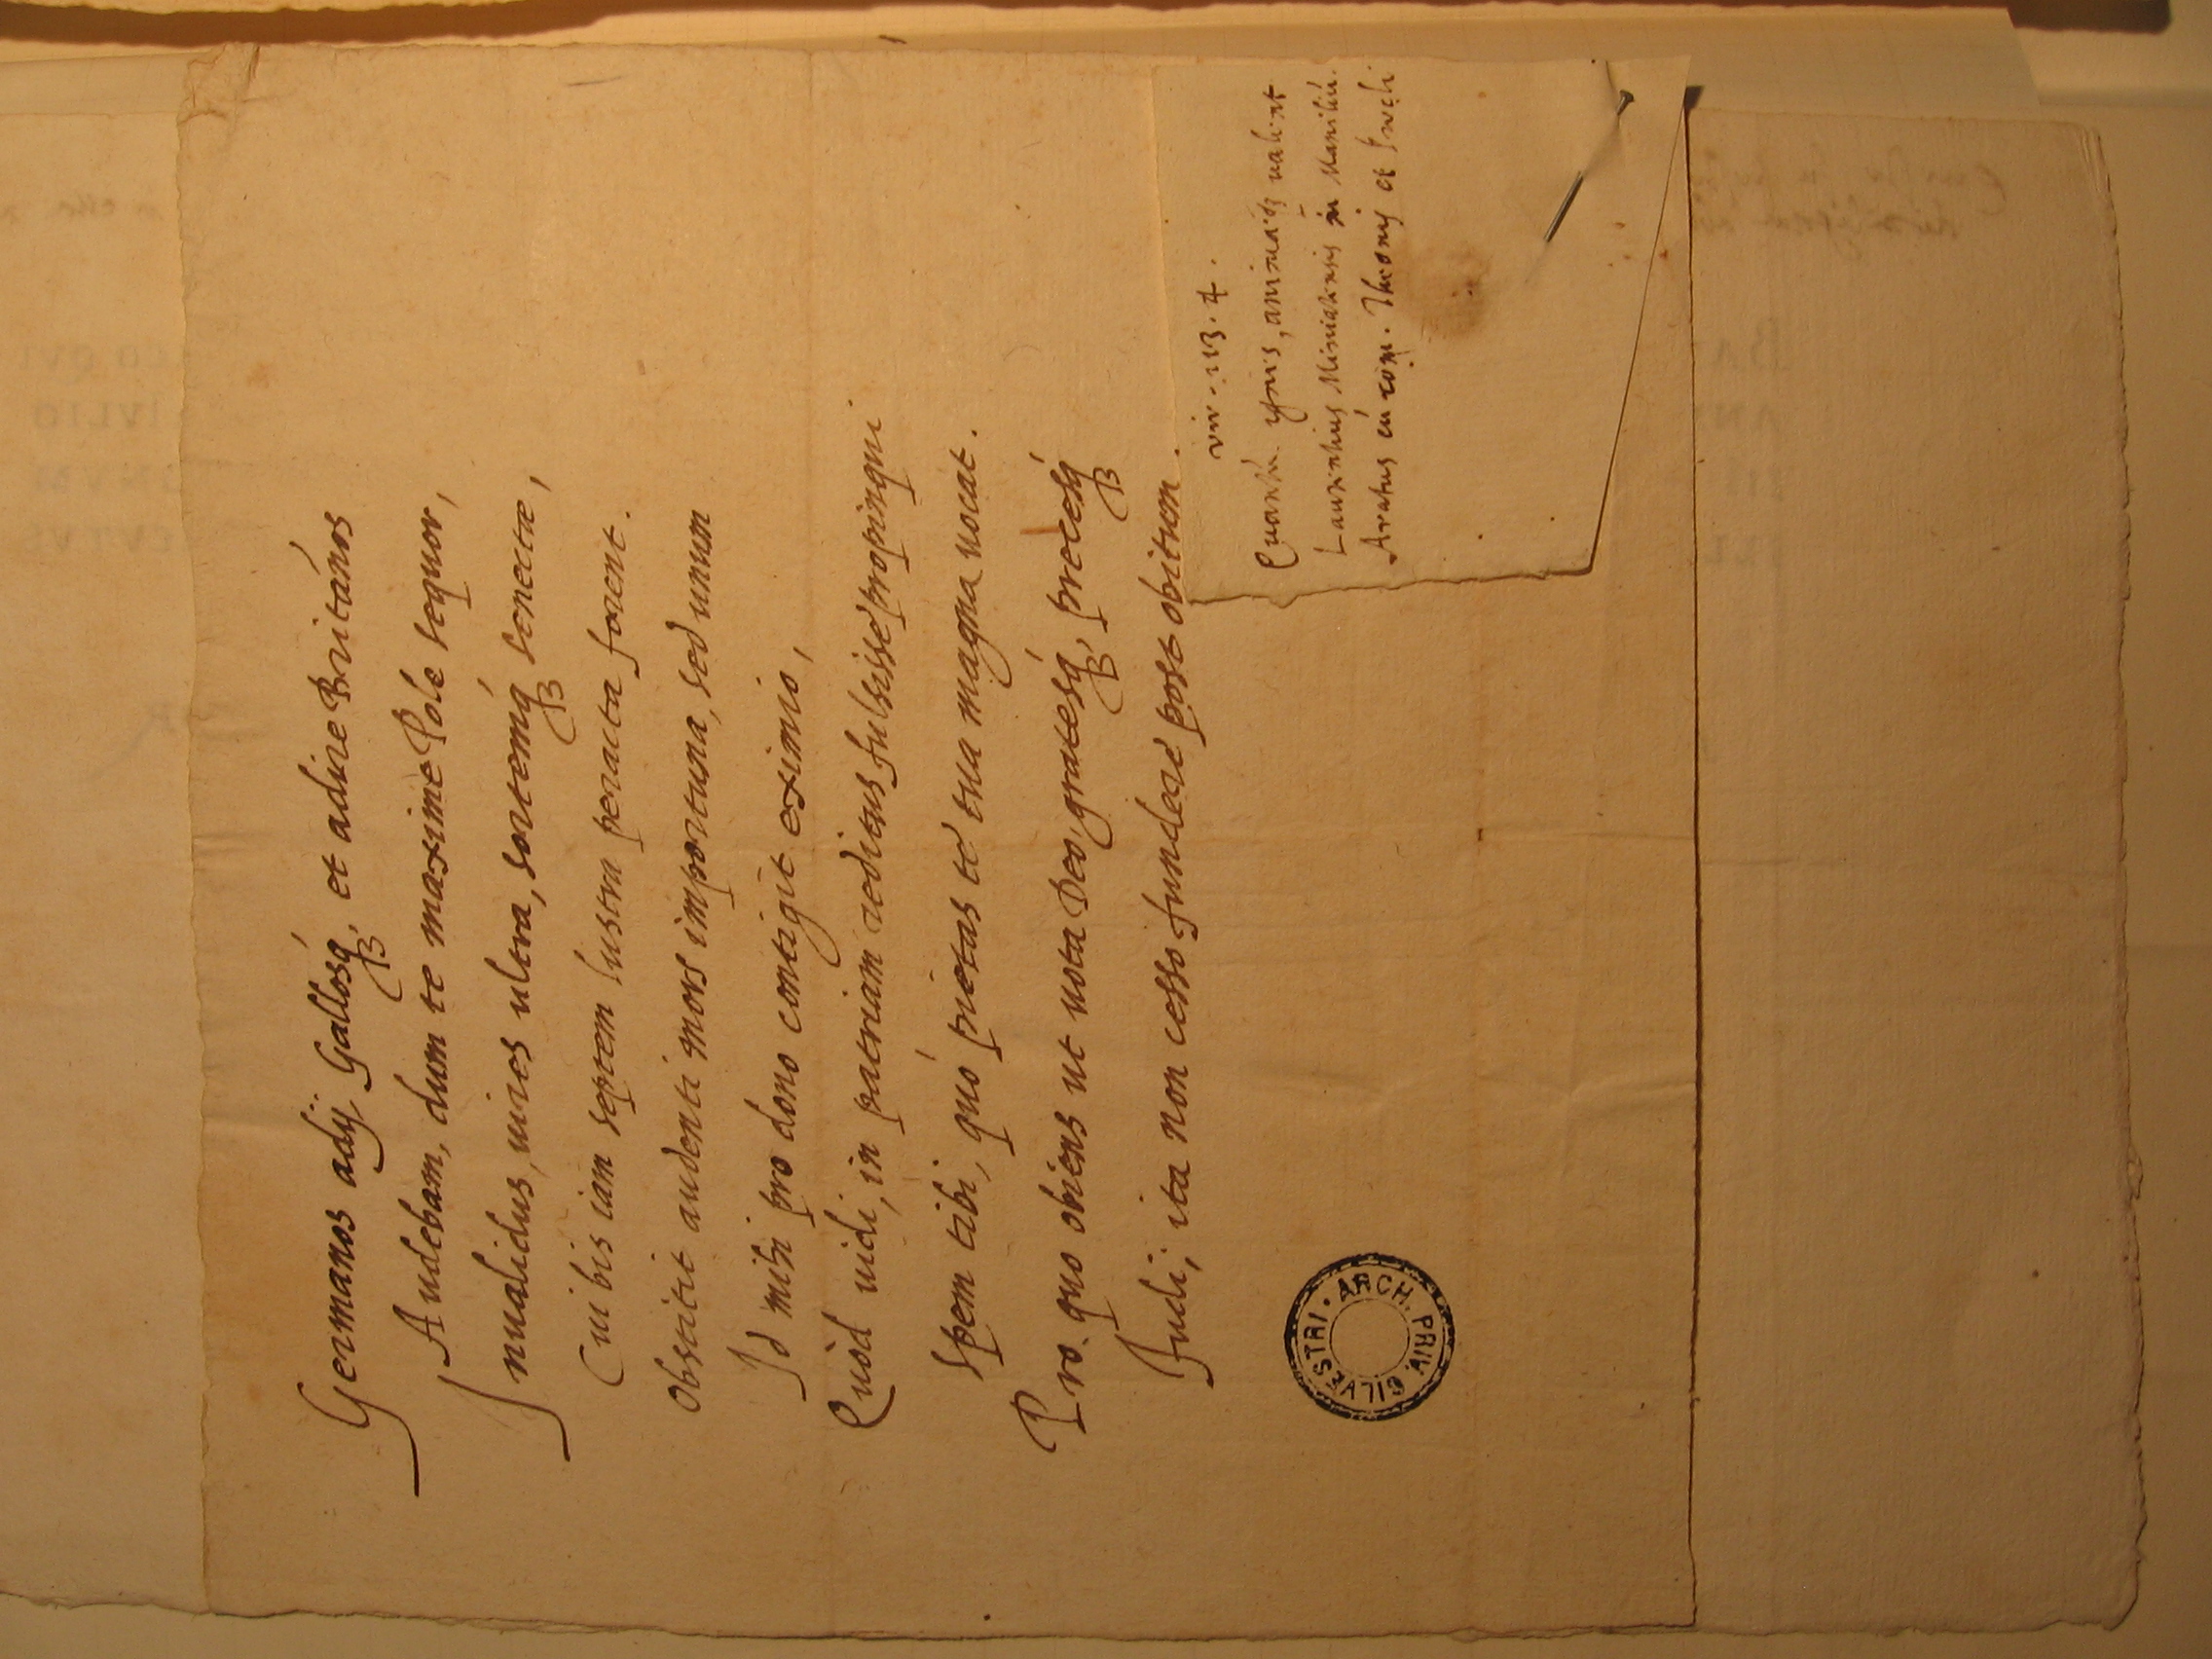 Germanos adij, Gallosq́ꝫ, et adire Britános
Audebam, dum te maxime Pole sequor,
Inualidus, uires ultra, sortemq́ꝫ senectæ,
Cui bis iam septem lustra peracta forent.
Obstitit audenti mors importuna, sed unum
Id mihi pro dono contigit eximio,
Quòd uidi, in patriam rediens fulsisse propinqui
Spem tibi, quò pietas te tua magna uocat.
Pro quo obiens ut uota Deo, gratesq́ꝫ, precesq́ꝫ
Fudi, ita non cesso fundere post obitum.
Laurentius Miniatensis in Maniliū.
Aratus cū com. Theonis et
ARCH. PRIV. CILVESTRI